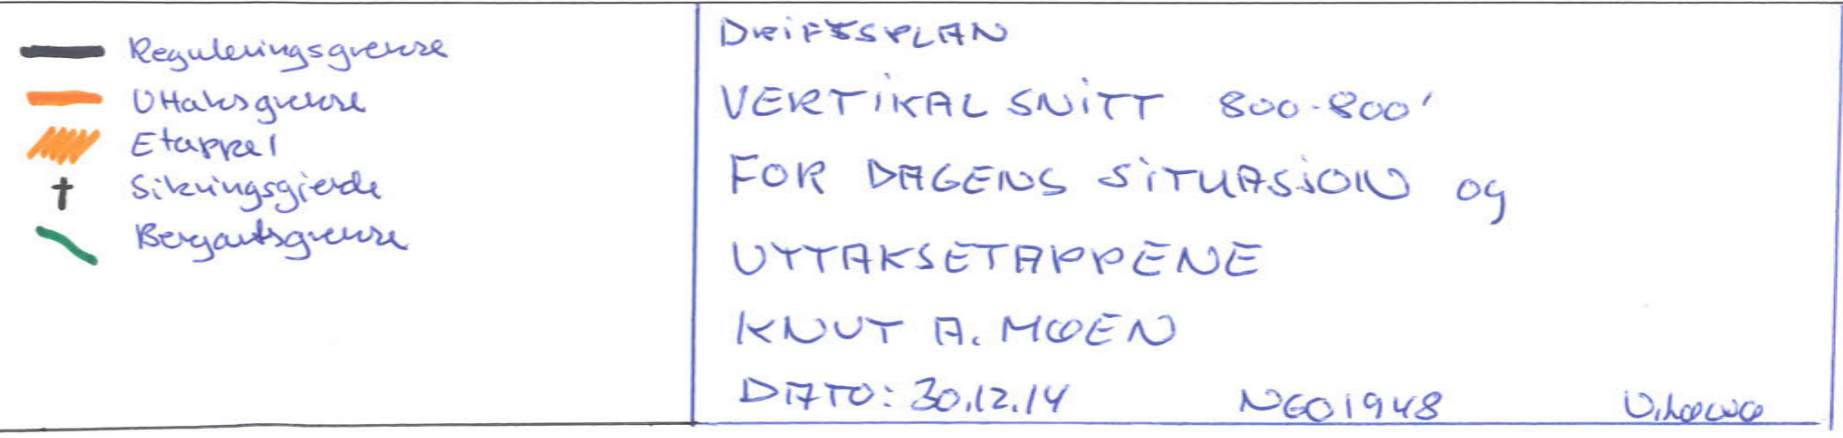 Reguleringsgrense
Uttaksgrense
Etappe 1
Sikringsgjerde
Bergartsgrense
DRIFTSPLAN
VERTIKAL SNITT 800-800'
FOR DAGENS SITUASJON og
UTTAKSETAPPENE
KNUT A. MOEN
DATO: 30.12.14 NGO1948